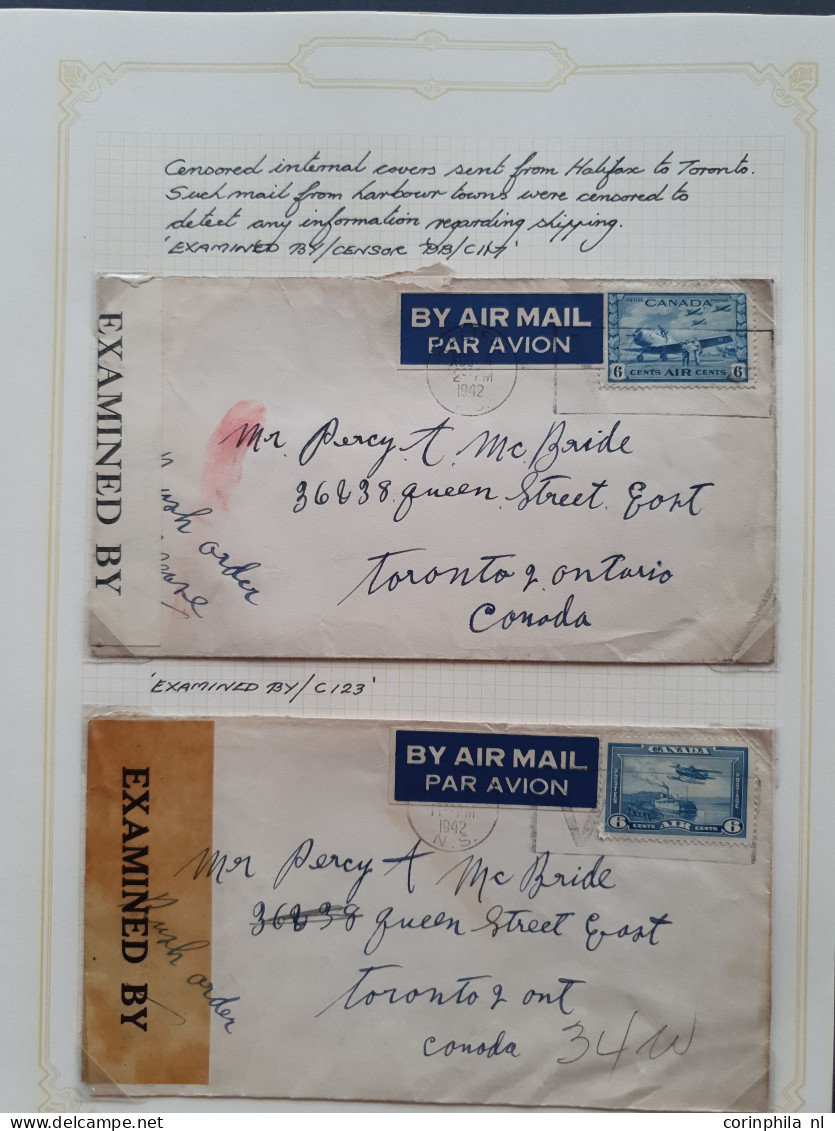 Censored internal covers sent from Halifax to Toronto.
Such mail from harbour towns were censored to
detect any information regarding shipping.
'EXAMINED BY/CENSOR DB/C117'
EXAMINED BY
BY AIR MAIL
PAR AVION
CANADA
6 CENTS AIR CENTS 6
PM
1942
N.S.
Mr. Percy A. Mc Bride
36238 queen Street East
Toronto 2 ontario
Canada
order
'EXAMINED BY/C123'
EXAMINED BY
BY AIR MAIL
PAR AVION
CANADA
POSTES POSTAGE
6 CENTS AIR CENTS 6
PM
1942
N.S.
Mr Percy A Mc Bride
36238 queen Street East
Toronto 2 ont
Canada
34 W
Rush order
corinphila nl